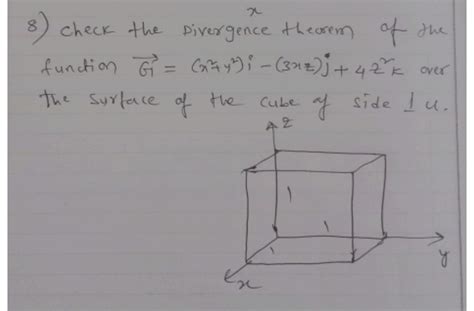 x
8) Check the Divergence theorem of the
function G⃗ = (x²+y²)i - (3xz)j + 4z²k over
the surface of the cube of side 1 u.
z
1
1
1
y
x